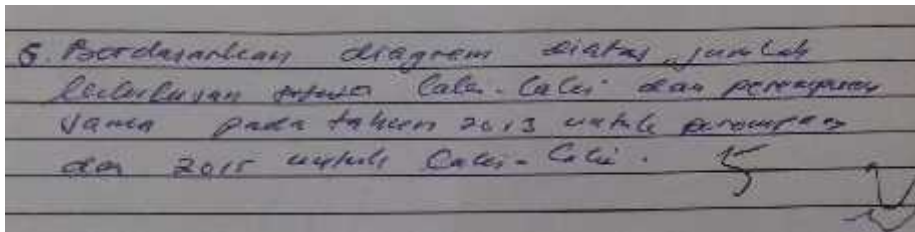 5. Berdasarkan diagram diatas, jumlah
kelulusan siswa laki-laki dan perempuan
sama pada tahun 2013 untuk perempuan
dan 2015 untuk laki-laki. 5